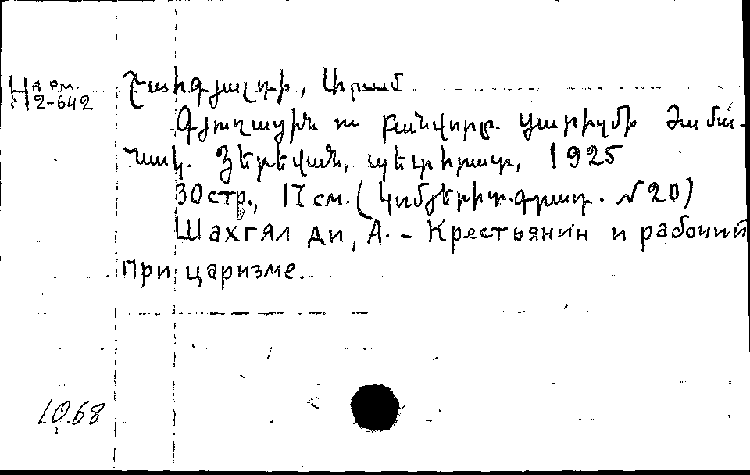 На арм. Շահգյալդի, Արամ
H 2-642
Գյուղացին ու բանվորը ցարիզմի ժամա-
նակ. Յերեվան, պետհրատ, 1925
30 стр., 17 см. (կոմյերիտ.գրադ. №20)
Шахгялди, А. - Крестьянин и рабочий
при царизме.
10.68